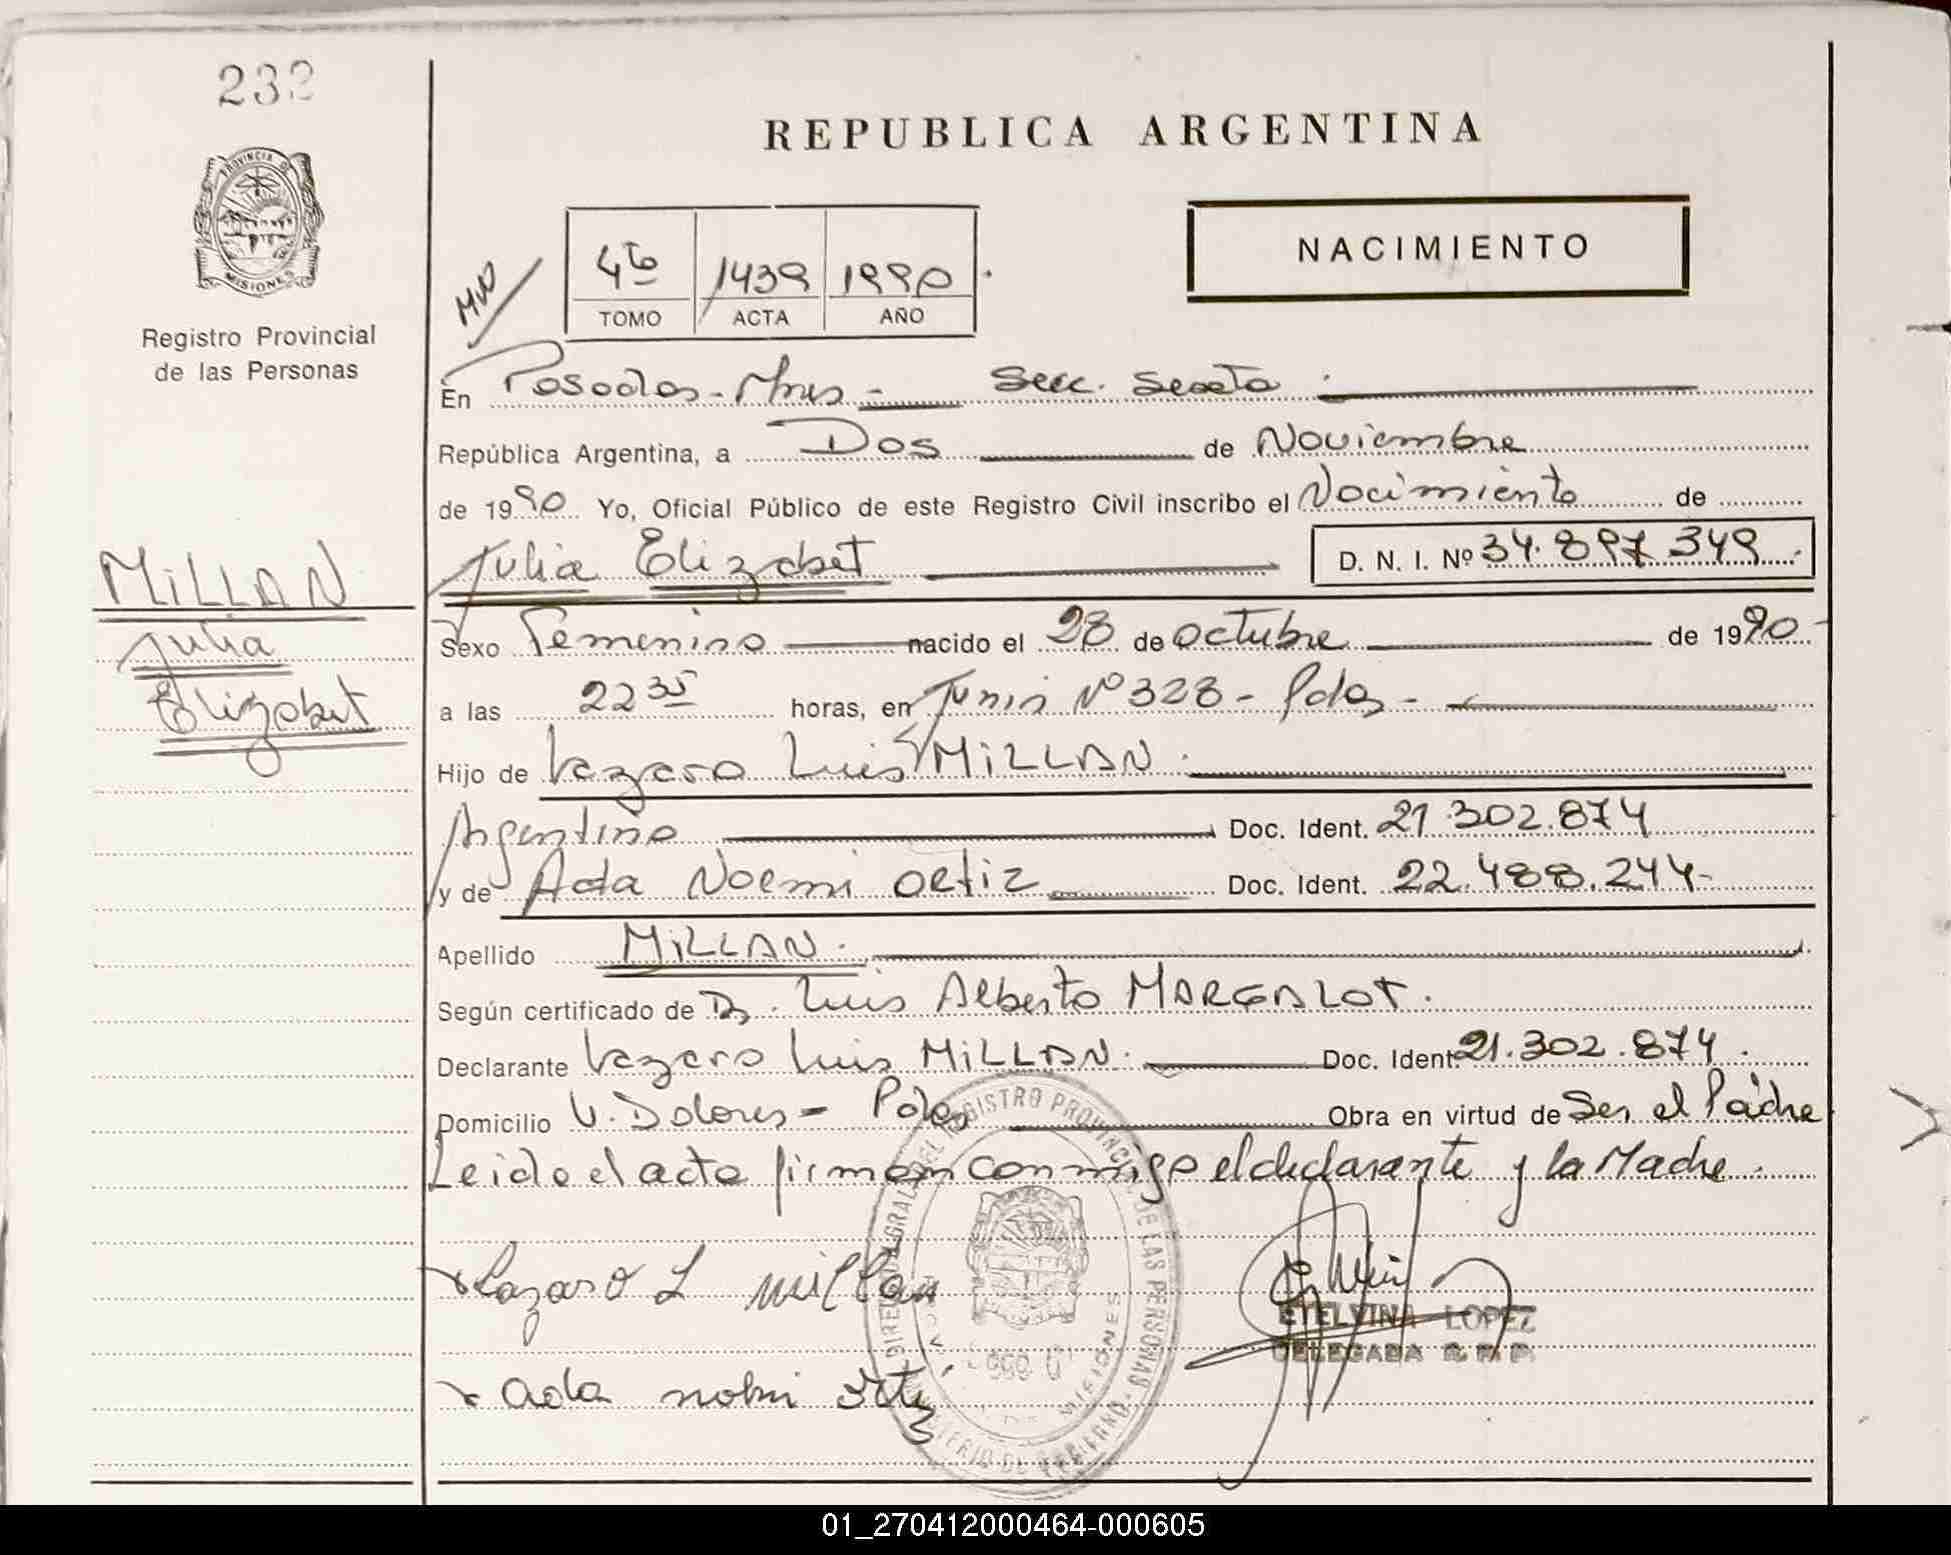 232
REPUBLICA ARGENTINA
PROVINCIA DE
MISIONES
Registro Provincial
de las Personas
4to 1439 1990
TOMO ACTA AÑO
NACIMIENTO
En Posadas - Mnes - Secc. Sexta
República Argentina, a Dos de Noviembre
de 1990 Yo, Oficial Público de este Registro Civil inscribo el Nacimiento de
Julia Elizabet D. N. I. Nº 34.897.349
MILLAN
Julia
Elizabet
Sexo Femenino nacido el 28 de octubre de 1990
a las 22 35 horas, en Junin Nº 328 - Pdas -
Hijo de Lazaro Luis MILLAN
Argentino Doc. Ident. 21.302.874
y de Ada Noemi Ortiz Doc. Ident. 22.488.244-
Apellido MILLAN.
Según certificado de Dr. Luis Alberto MARGALOT.
Declarante Lazaro Luis MILLAN. Doc. Ident. 21.302.874.
Domicilio V. Dolores - Pdas Obra en virtud de Ser el Padre
Leido el acta firman conmigo el declarante y la Madre.
Lazaro L millan
ETELVINA LOPEZ
DELEGADA R. P. P.
Ada nohmi Ortiz
DIRECC. GRAL. DEL REGISTRO PROVINCIAL DE LAS PERSONAS
MINISTERIO DE GOBIERNO
MISIONES
01_270412000464-000605